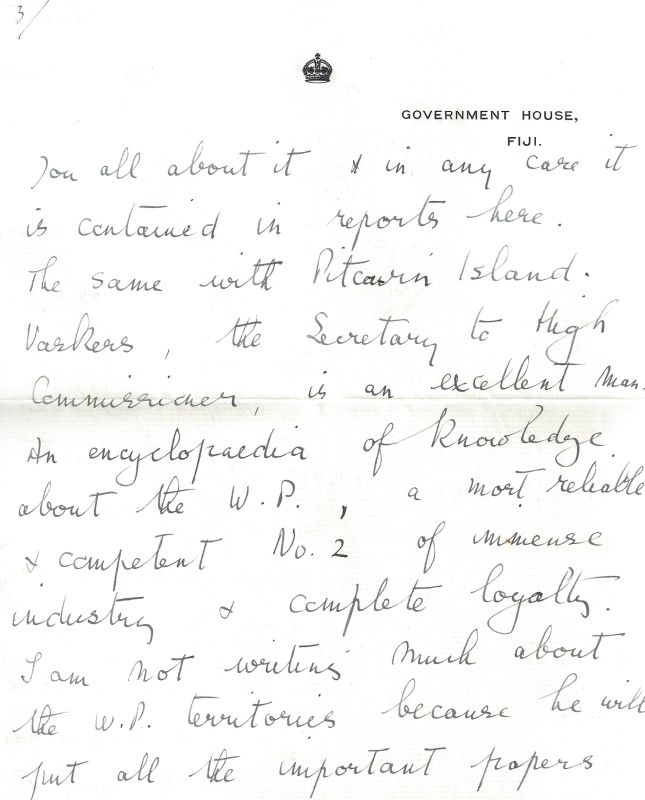 3/
GOVERNMENT HOUSE,
FIJI.
you all about it & in any case it
is contained in reports here.
The same with Pitcairn Island.
Vaskess, the Secretary to High
Commissioner, is an excellent man.
An encyclopaedia of knowledge
about the W.P., a most reliable
& competent No. 2 of immense
industry & complete loyalty.
I am not writing much about
the W.P. territories because he will
put all the important papers